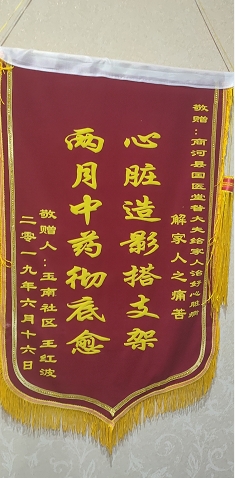 敬赠：商河县国医堂昝大夫给家人治好心脏病
解家人之痛苦
心脏造影搭支架
两月中药彻底愈
敬赠人：玉南社区 王红波
二零一九年六月十六日